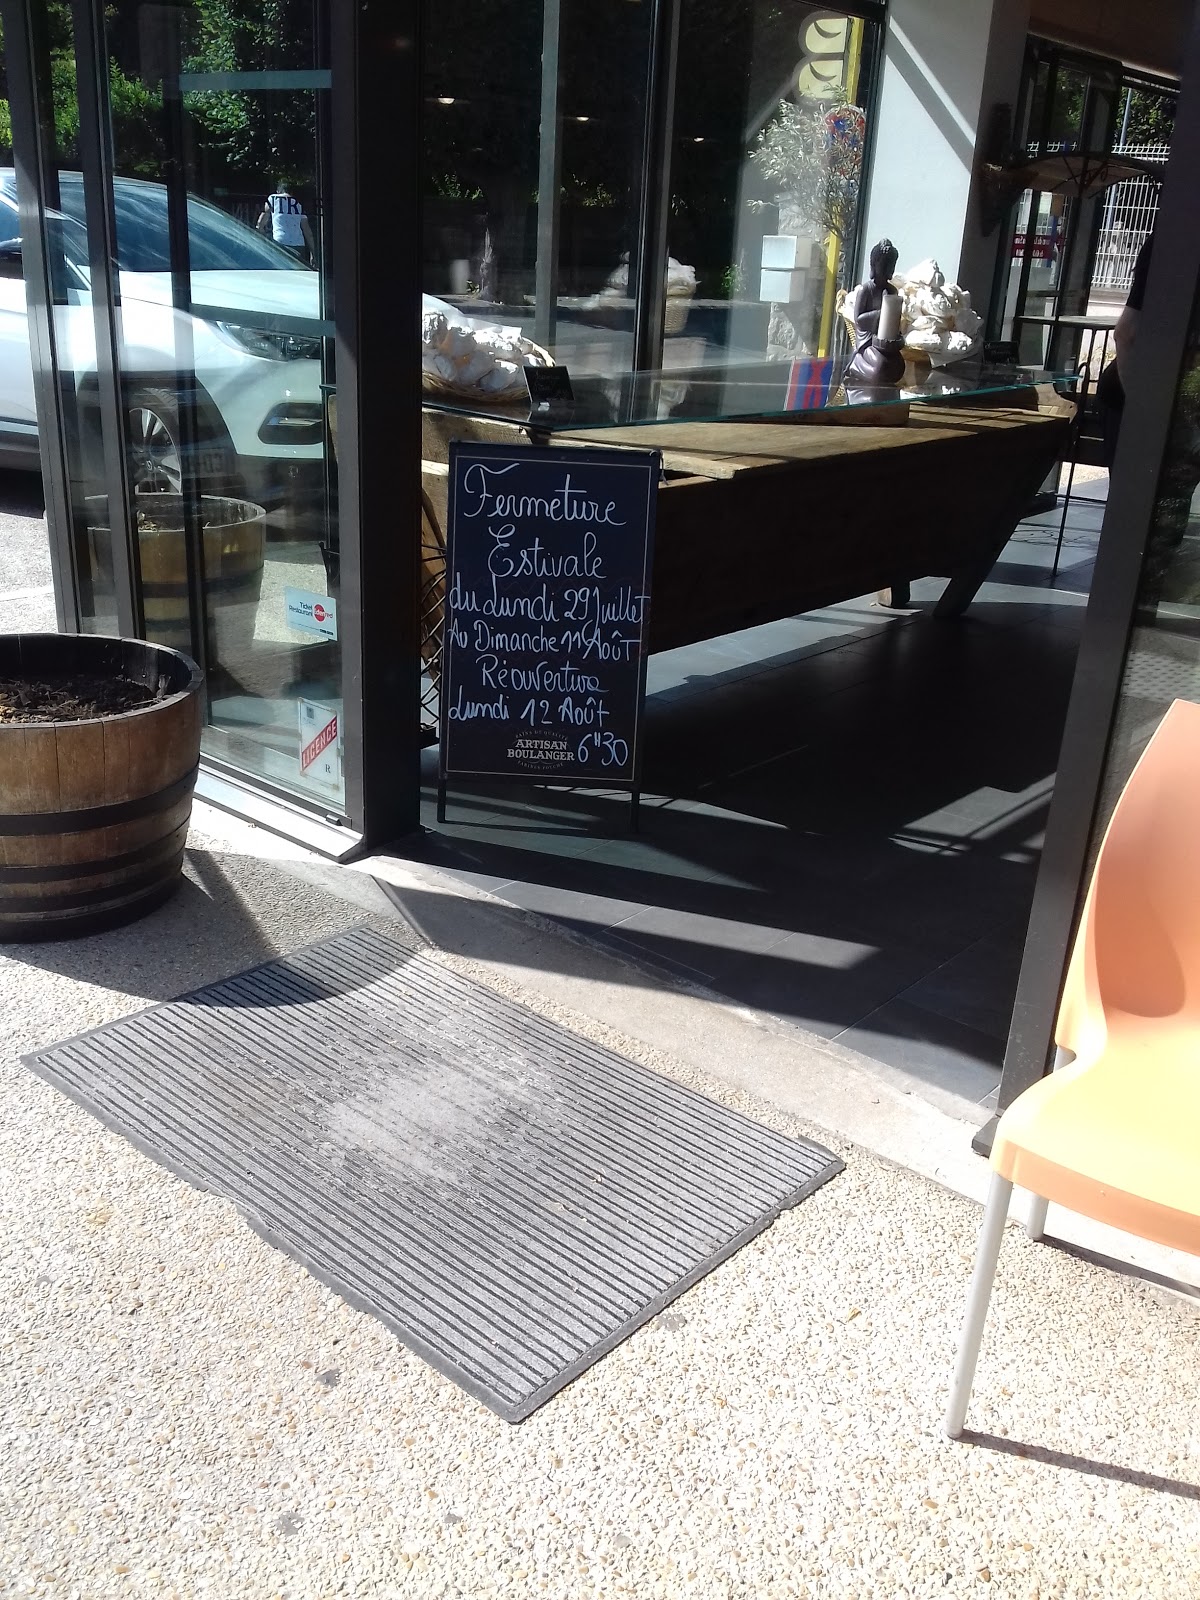 Fermeture
Estivale
du Lundi 29 Juillet
Au Dimanche 11 Août
Réouverture
Lundi 12 Août
6H30
ARTISAN
BOULANGER
Ticket
Restaurant
LICENCE
R